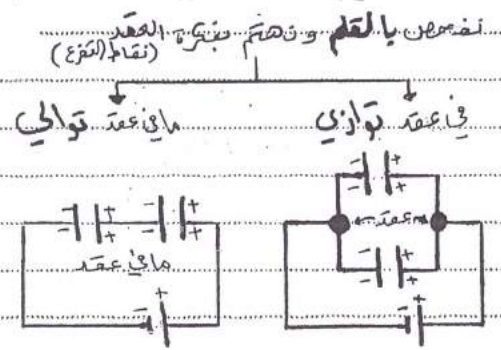 نفحص بالقلم ونهتم بفكرة العقد
(نقاط التفرع)
في عقد توازي
مافي عقد توالي
عقد
مافي عقد